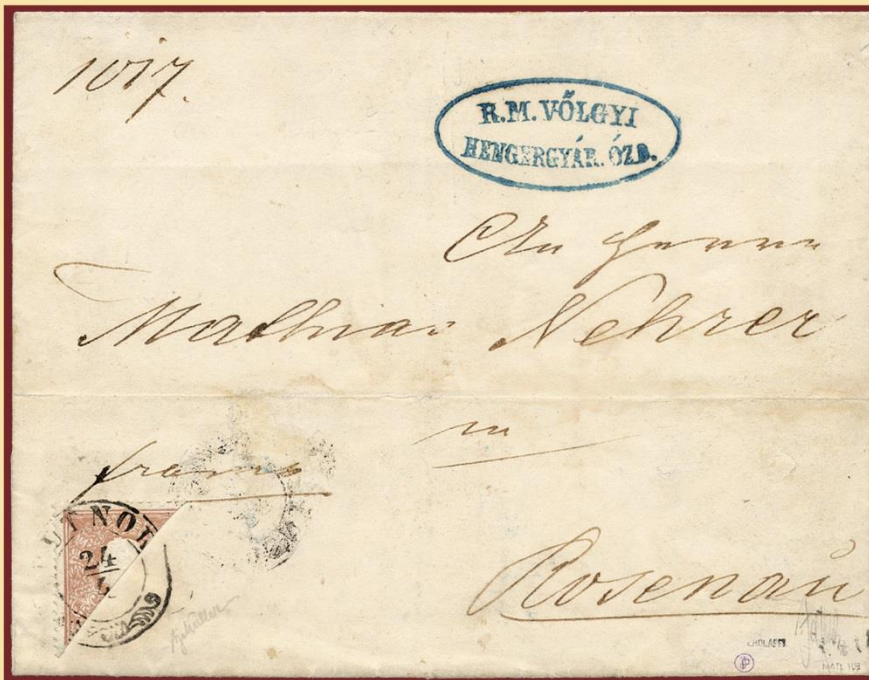 1017.
R.M. VŐLGYI
HENGERGYÁR. ÓZD.
An Herrn
Mathias Nehrer
in
franco
24
Rosenau